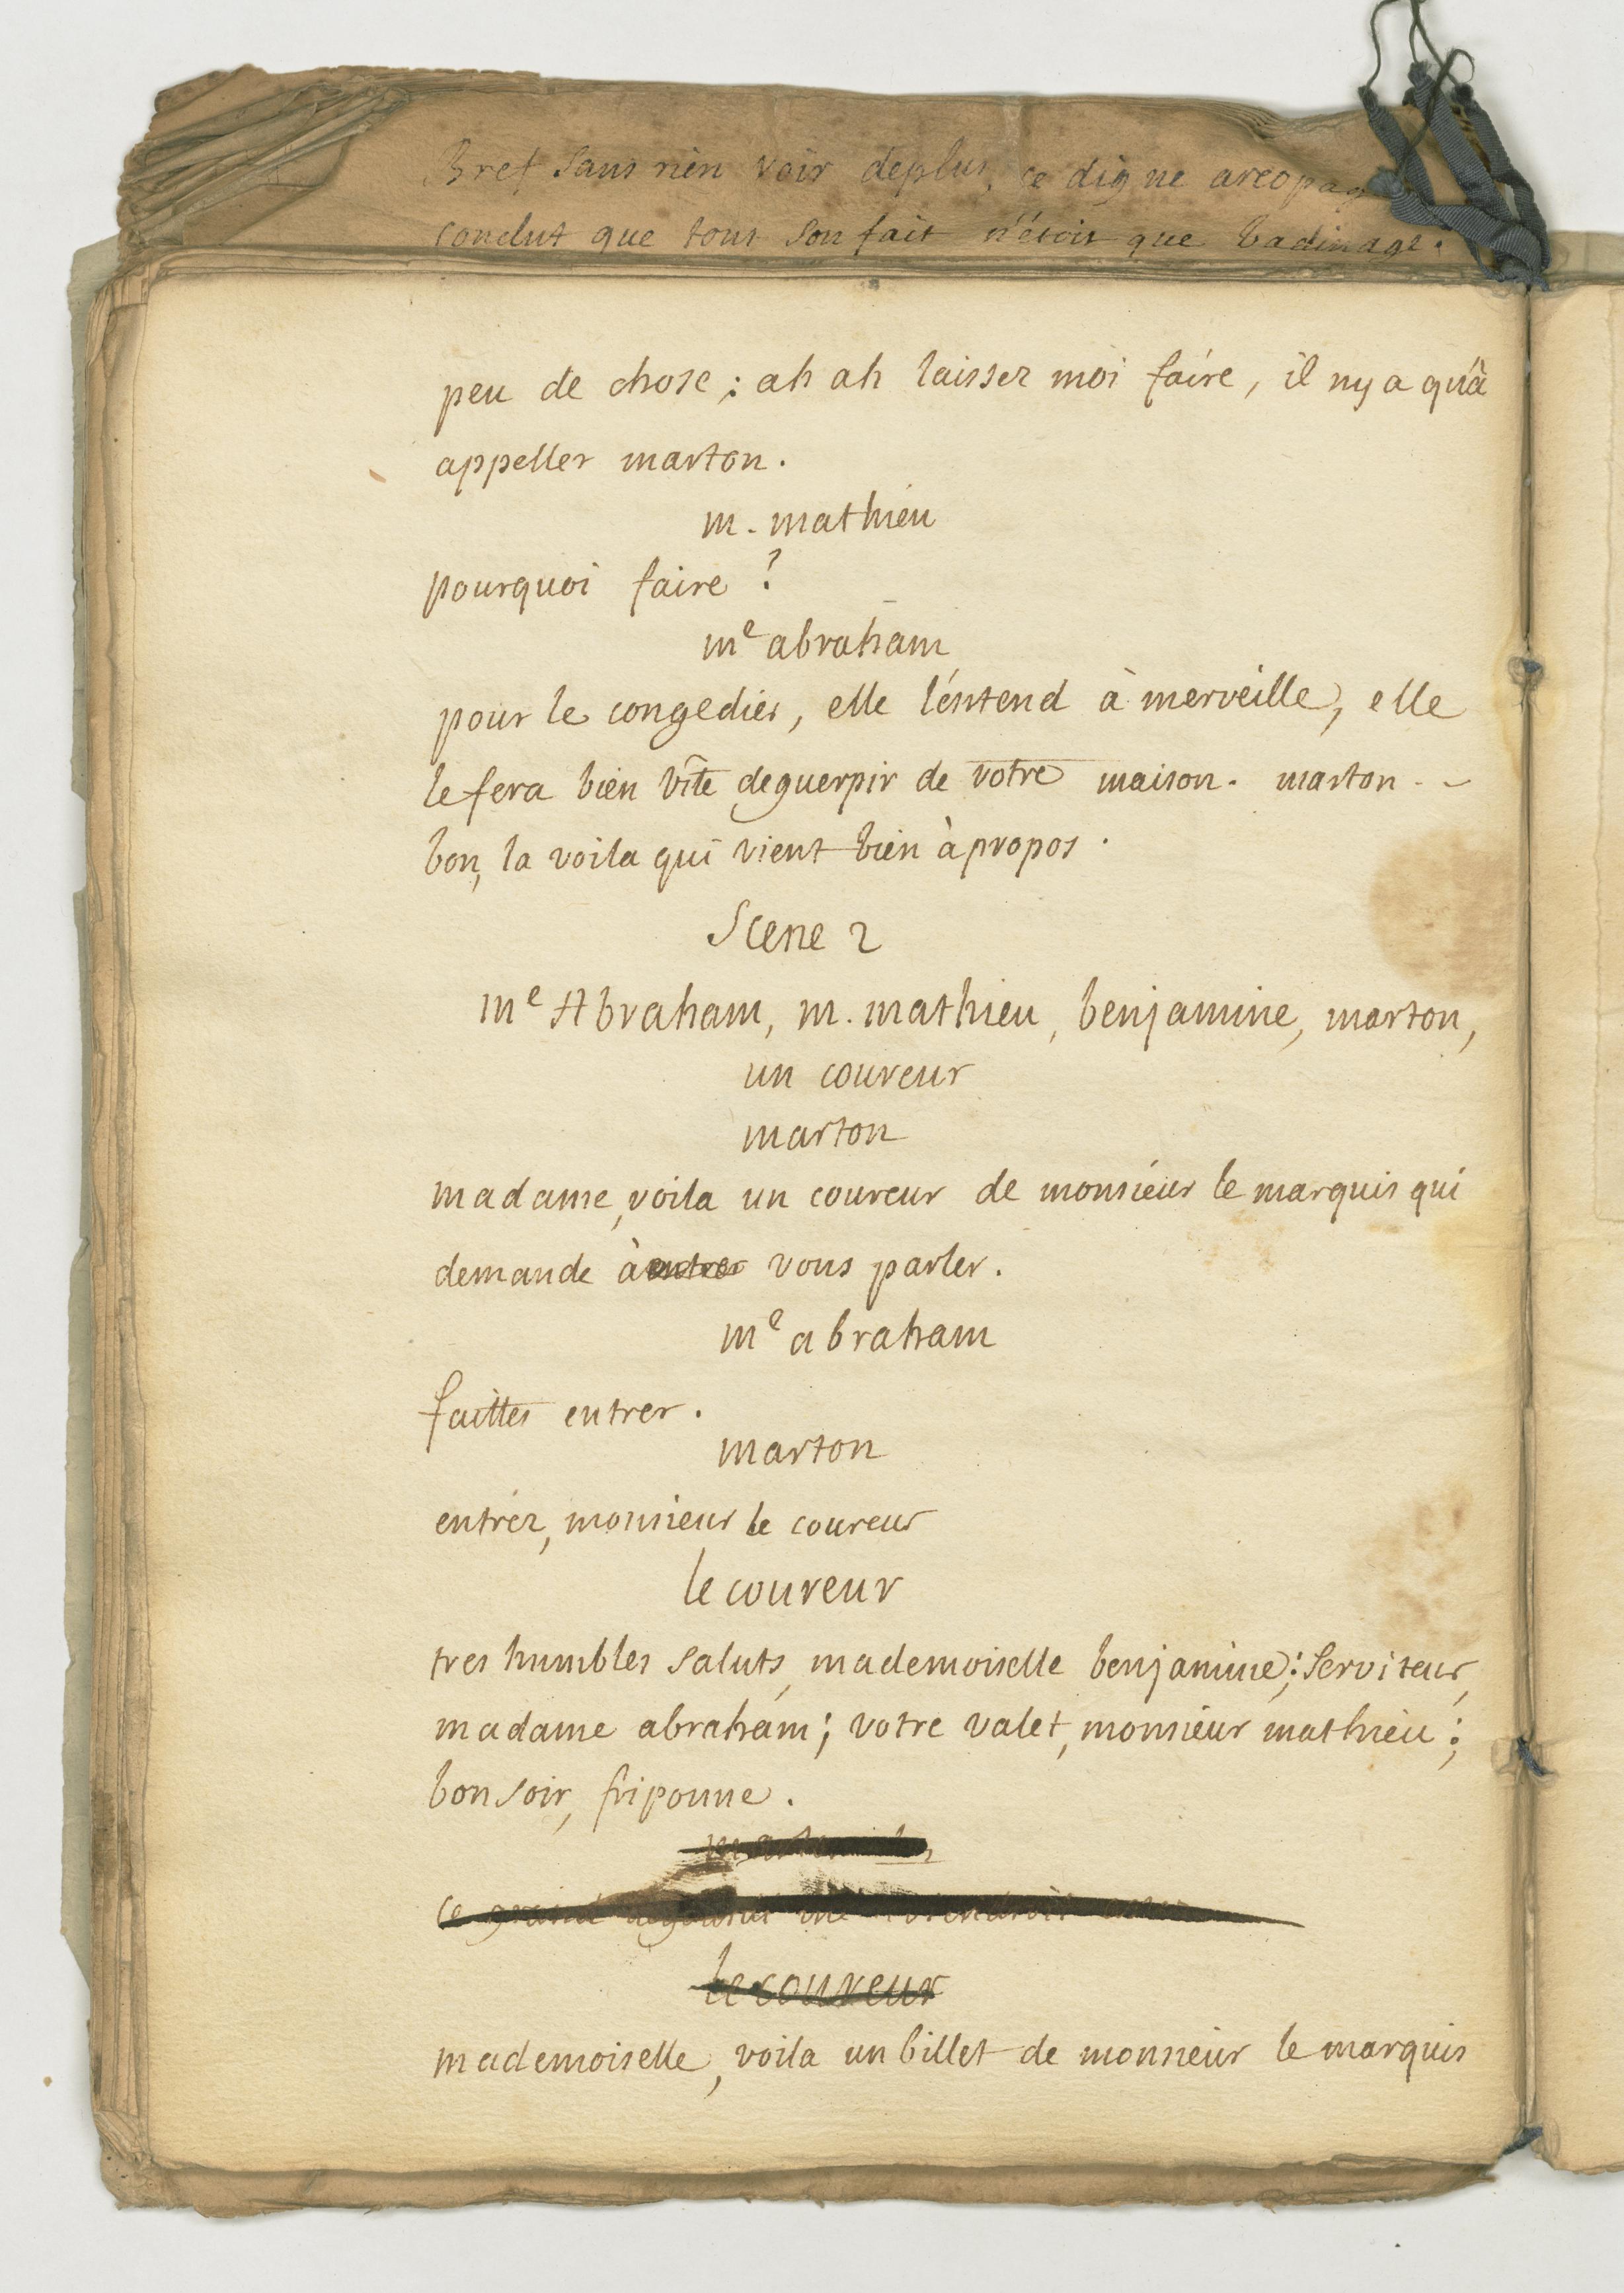 Bref sans rien voir deplus, ce digne areopag
conclut que tout son fait n'étoit que badinage.
peu de chose; ah ah laisser moi faire, il ny a qu'à
appeller marton.
m. mathieu
pourquoi faire?
me abraham
pour le congedier, elle l'entend à merveille, elle
le fera bien vîte deguerpir de votre maison. marton --
bon, la voila qui vient bien àpropos.
Scene 2
me Abraham, m. mathieu, benjamine, marton,
un coureur
marton
madame, voila un coureur de monsieur le marquis qui
demande à entrer vous parler.
me abraham
faittes entrer.
marton
entrez, monsieur le coureur
le coureur
tres humbles saluts, mademoiselle benjamine; serviteur,
madame abraham; votre valet, monsieur mathieu;
bon soir, friponne.
ce grand
le coureur
mademoiselle, voila un billet de monsieur le marquis